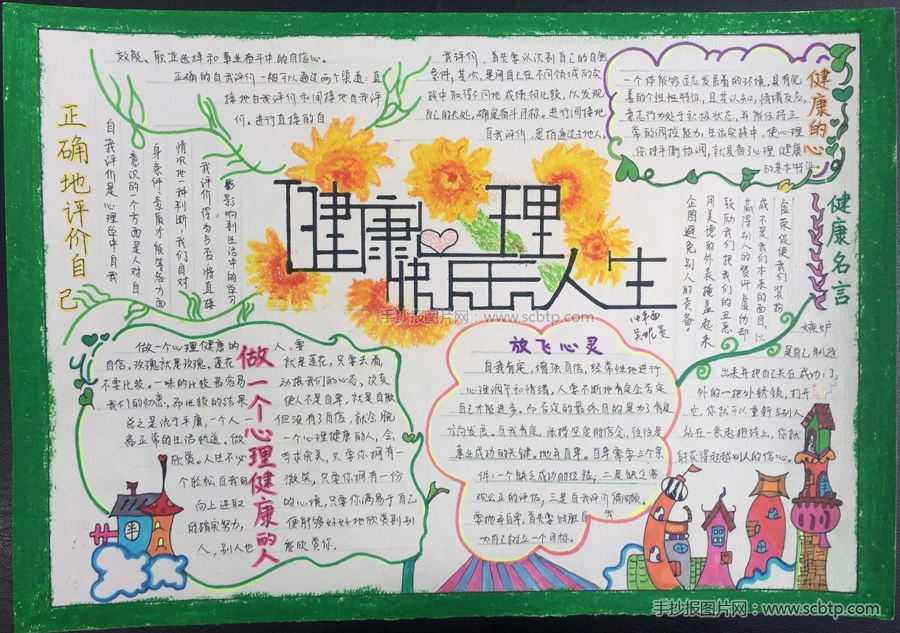 正确地评价自己
自我评价是心理学中自我
意识的一个方面是人对自
身条件、素质才能等各方面
情况地一种判断,我们自对
我评价得当与否将直接
影响到生活中的学习
效能、职业选择和事业奋斗中的自信心。
正确的自我评价一般可以通过两个渠道:直
接地自我评价和间接地自我评
价。进行直接的自
我评价,首先要认识到自己的自身
条件,其次,是用自己在不同领域的实
践中取得不同地成绩相比较,以发现
自己的长处,确定奋斗目标。进行间接地
自我评价,是指通过与他人。
健康的心
一个体能够适应发展着的环境,具有完
善的个性特征,且其认知,情绪反应,
意志行为处于积极状态,并能保持正
常的调控能力,生活实践中,使心理
保持平衡协调,就具备了心理健康
的基本特征。
健康心理
快乐人生
手抄报图片网:www.scbtp.com
健康名言
虚荣促使我们装扮
成不是我们本来的面目,以
赢得别人的赞许,虚伪却
鼓励我们把我们的丑恶
用美德的外表掩盖起来
企图避免别人的责备。
嫉妒
是自己制造
出来并把自己关在成功门
外的一把外锈锁,打开
它,你就可以重新与别人
站在一条起跑线上,你就
做一个心理健康的人
做一个心理健康的人,要
自信,玫瑰就是玫瑰,莲花就是莲花,只要去看,
不要比较。一味的比较最容易动摇我们的心态,改变
我们的初恋,而比较的结果使人不是自卑,就是自傲
总之是流于平庸,一个人但没有了自信,就会脱
离正常的生活轨道,做一个心理健康的人,会
欣赏。人生不必苛求完美,只要你拥有一
个轻松自我的微笑,只要你拥有一份
向上进取的心境,只要你满足于自己
的踏实努力,便能够好好地欣赏到别
人,别人也能欣赏你。
放飞心灵
自我肯定,增强自信,经常性地进行
心理调节和情绪,人要不断地肯定否定
自己才能进步,而否定的最终目的是为了肯定
方向发展。自我肯定,保持坚定的信念,往往是
事业成功的关键。抛弃自卑。自卑需要三个条
件:一个缺乏成功的经验;二是缺乏客
观公正的评估,三是自我评价偏颇。
要抛弃自卑,首先要战胜自我
为自己树立一个目标。
手抄报图片网:www.scbtp.com